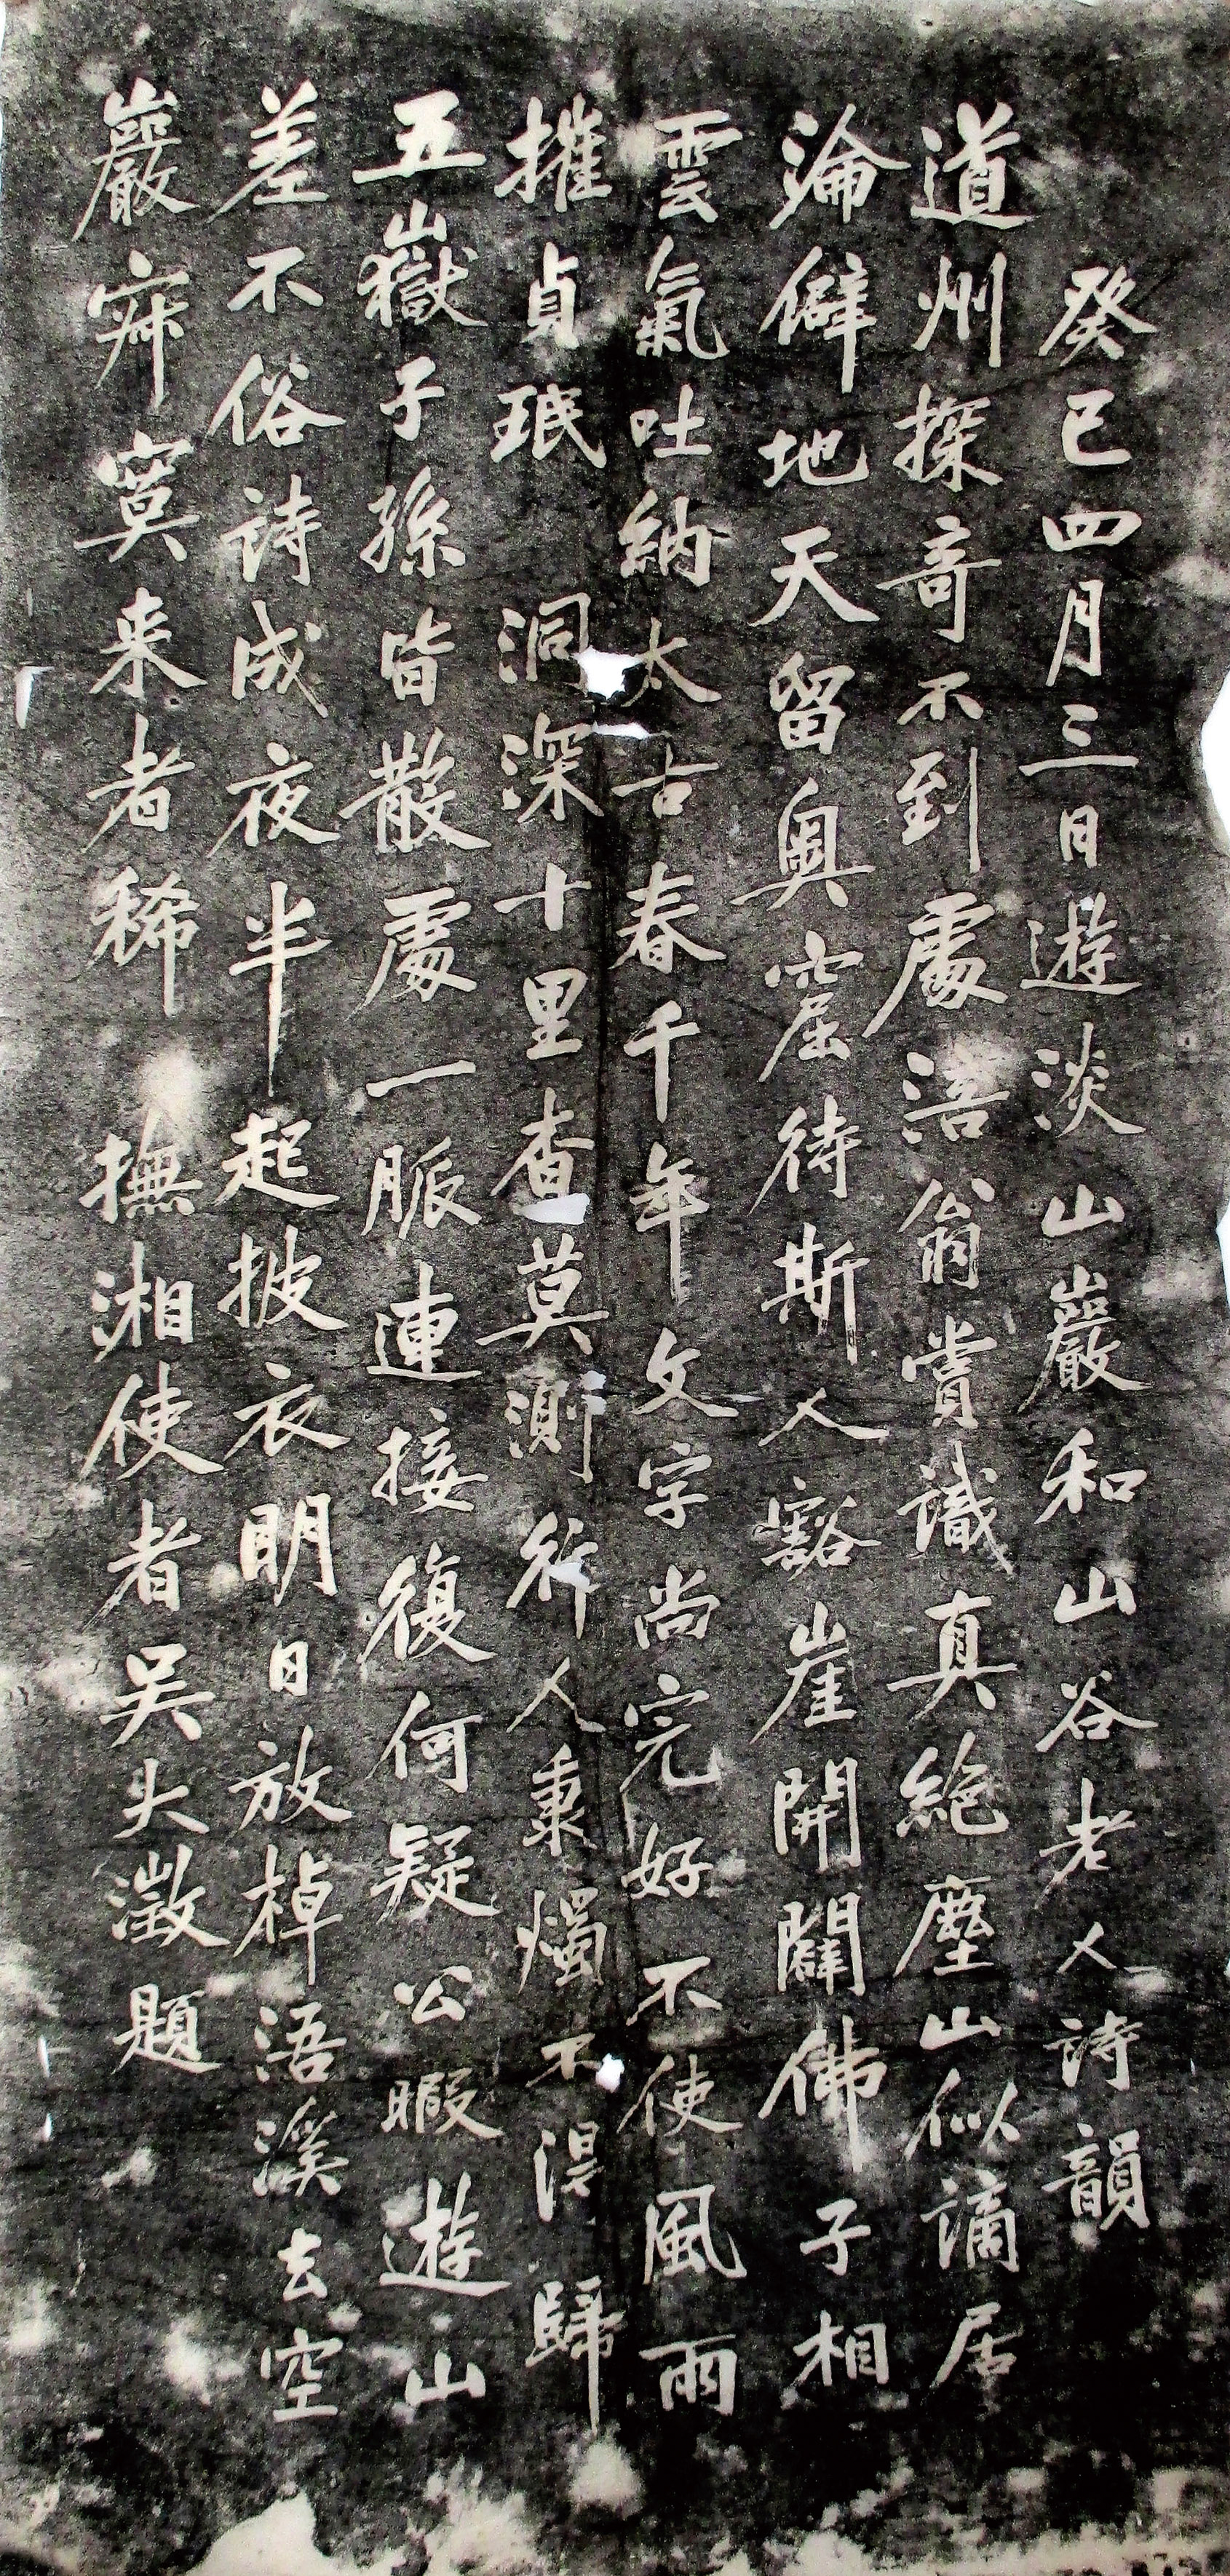 癸巳四月三日遊淡山巖和山谷老人詩韻
道州探奇不到處浯翁賞識真絕塵山似謫居
淪僻地天留奧窟待斯人豁崖開闢佛子相
雲氣吐納太古春千年文字尚完好不使風雨
摧貞珉 洞深十里杳莫測行人秉燭不得歸
五嶽子孫皆散處一脈連接復何疑公暇遊山
差不俗詩成夜半起披衣明日放棹浯溪去空
巖寂寞来者稀 撫湘使者吳大澂題